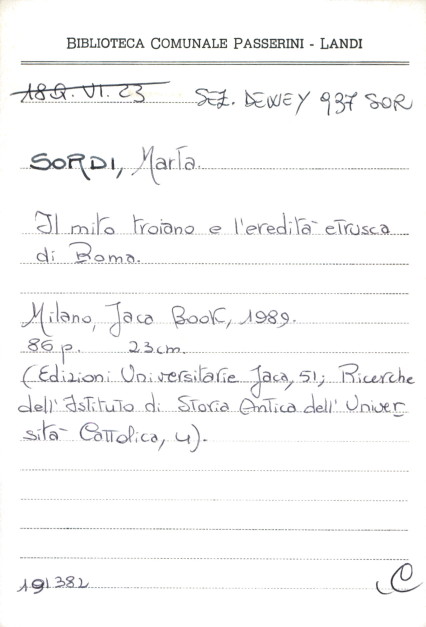 BIBLIOTECA COMUNALE PASSERINI - LANDI
18Q.VI.23 SEZ. DEWEY 937 SOR
SORDI, Marta.
Il mito troiano e l'eredità etrusca
di Roma.
Milano, Jaca Book, 1989.
86 p. 23 cm.
(Edizioni Universitarie Jaca, 51; Ricerche
dell'Istituto di Storia Antica dell'Univer
sità Cattolica, 4).
191382 C